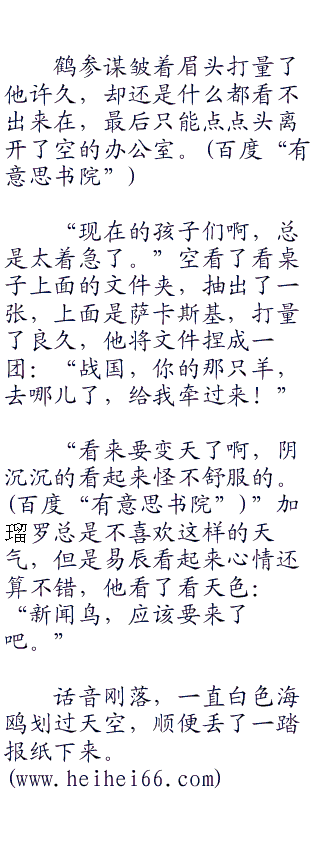 鹤参谋皱着眉头打量了
他许久，却还是什么都看不
出来在，最后只能点点头离
开了空的办公室。(百度“有
意思书院”)
“现在的孩子们啊，总
是太着急了。”空看了看桌
子上面的文件夹，抽出了一
张，上面是萨卡斯基，打量
了良久，他将文件捏成一
团：“战国，你的那只羊，
去哪儿了，给我牵过来！”
“看来要变天了啊，阴
沉沉的看起来怪不舒服的。
(百度“有意思书院”)”加
瑠罗总是不喜欢这样的天
气，但是易辰看起来心情还
算不错，他看了看天色：
“新闻鸟，应该要来了
吧。”
话音刚落，一直白色海
鸥划过天空，顺便丢了一踏
报纸下来。
(www.heihei66.com)